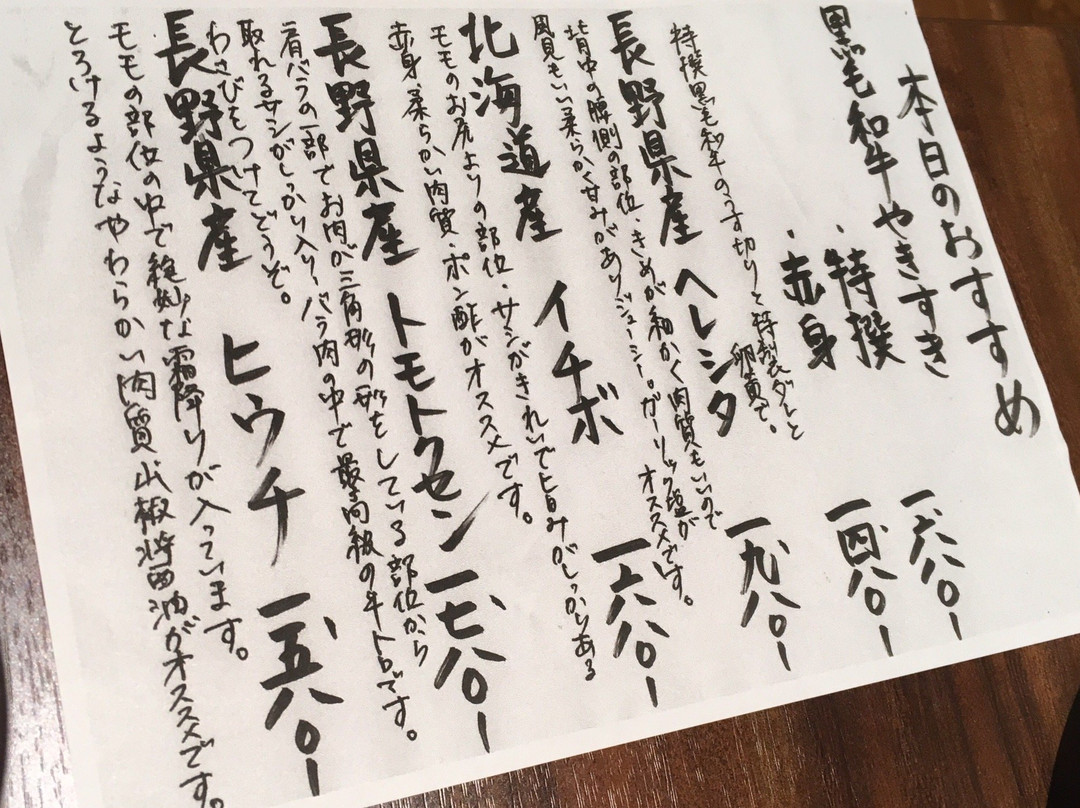 本日のおすすめ
黒毛和牛やきすき
・特撰 一、六八〇ー
・赤身 一、四八〇ー
特撰黒毛和牛のうす切りと特製ダレと
卵黄で。
長野県産 ヘレシタ 一、九八〇ー
背中の腰側の部位・きめが細かく肉質もいいので
風見もいい柔らかく甘みがありジューシー。ガーリック塩が
オススメです。
北海道産 イチボ 一、六八〇ー
モモのお尻よりの部位・サシがきれいで旨みがしっかりある
赤身・柔らかい肉質・ポン酢がオススメです。
長野県産 トモトクセン 一、七八〇ー
肩バラの一部でお肉が三角形の形をしている部位から
取れるサシがしっかり入り、バラ肉の中で最高級の牛トロです。
わさびをつけてどうぞ。
長野県産 ヒウチ 一、五八〇ー
モモの部位の中で絶妙な霜降りが入っています。
とろけるようなやわらかい肉質山椒醤油がオススメです。